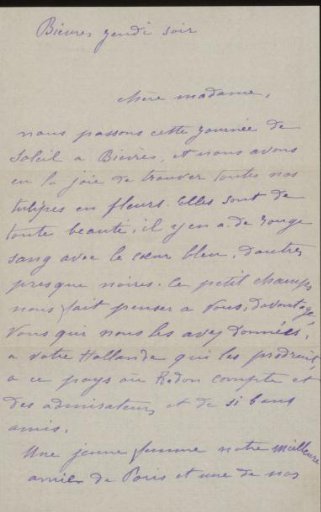 Bièvres jeudi soir
chère madame,
nous passons cette journée de
soleil a Bièvres, et nous avons
eu la joie de trouver toutes nos
tulipes en fleurs. Elles sont de
toute beauté, il y en a de rouge
sang avec le cœur bleu, d'autres
presque noires. Ce petit champs
nous fait penser a vous, davantage
vous qui nous les avez données,
a votre Hollande qui les produit,
a ce pays ou Redon compte et
des admirateurs et de si bons
amis.
Une jeune femme notre meilleure
amie de Paris et une de nos